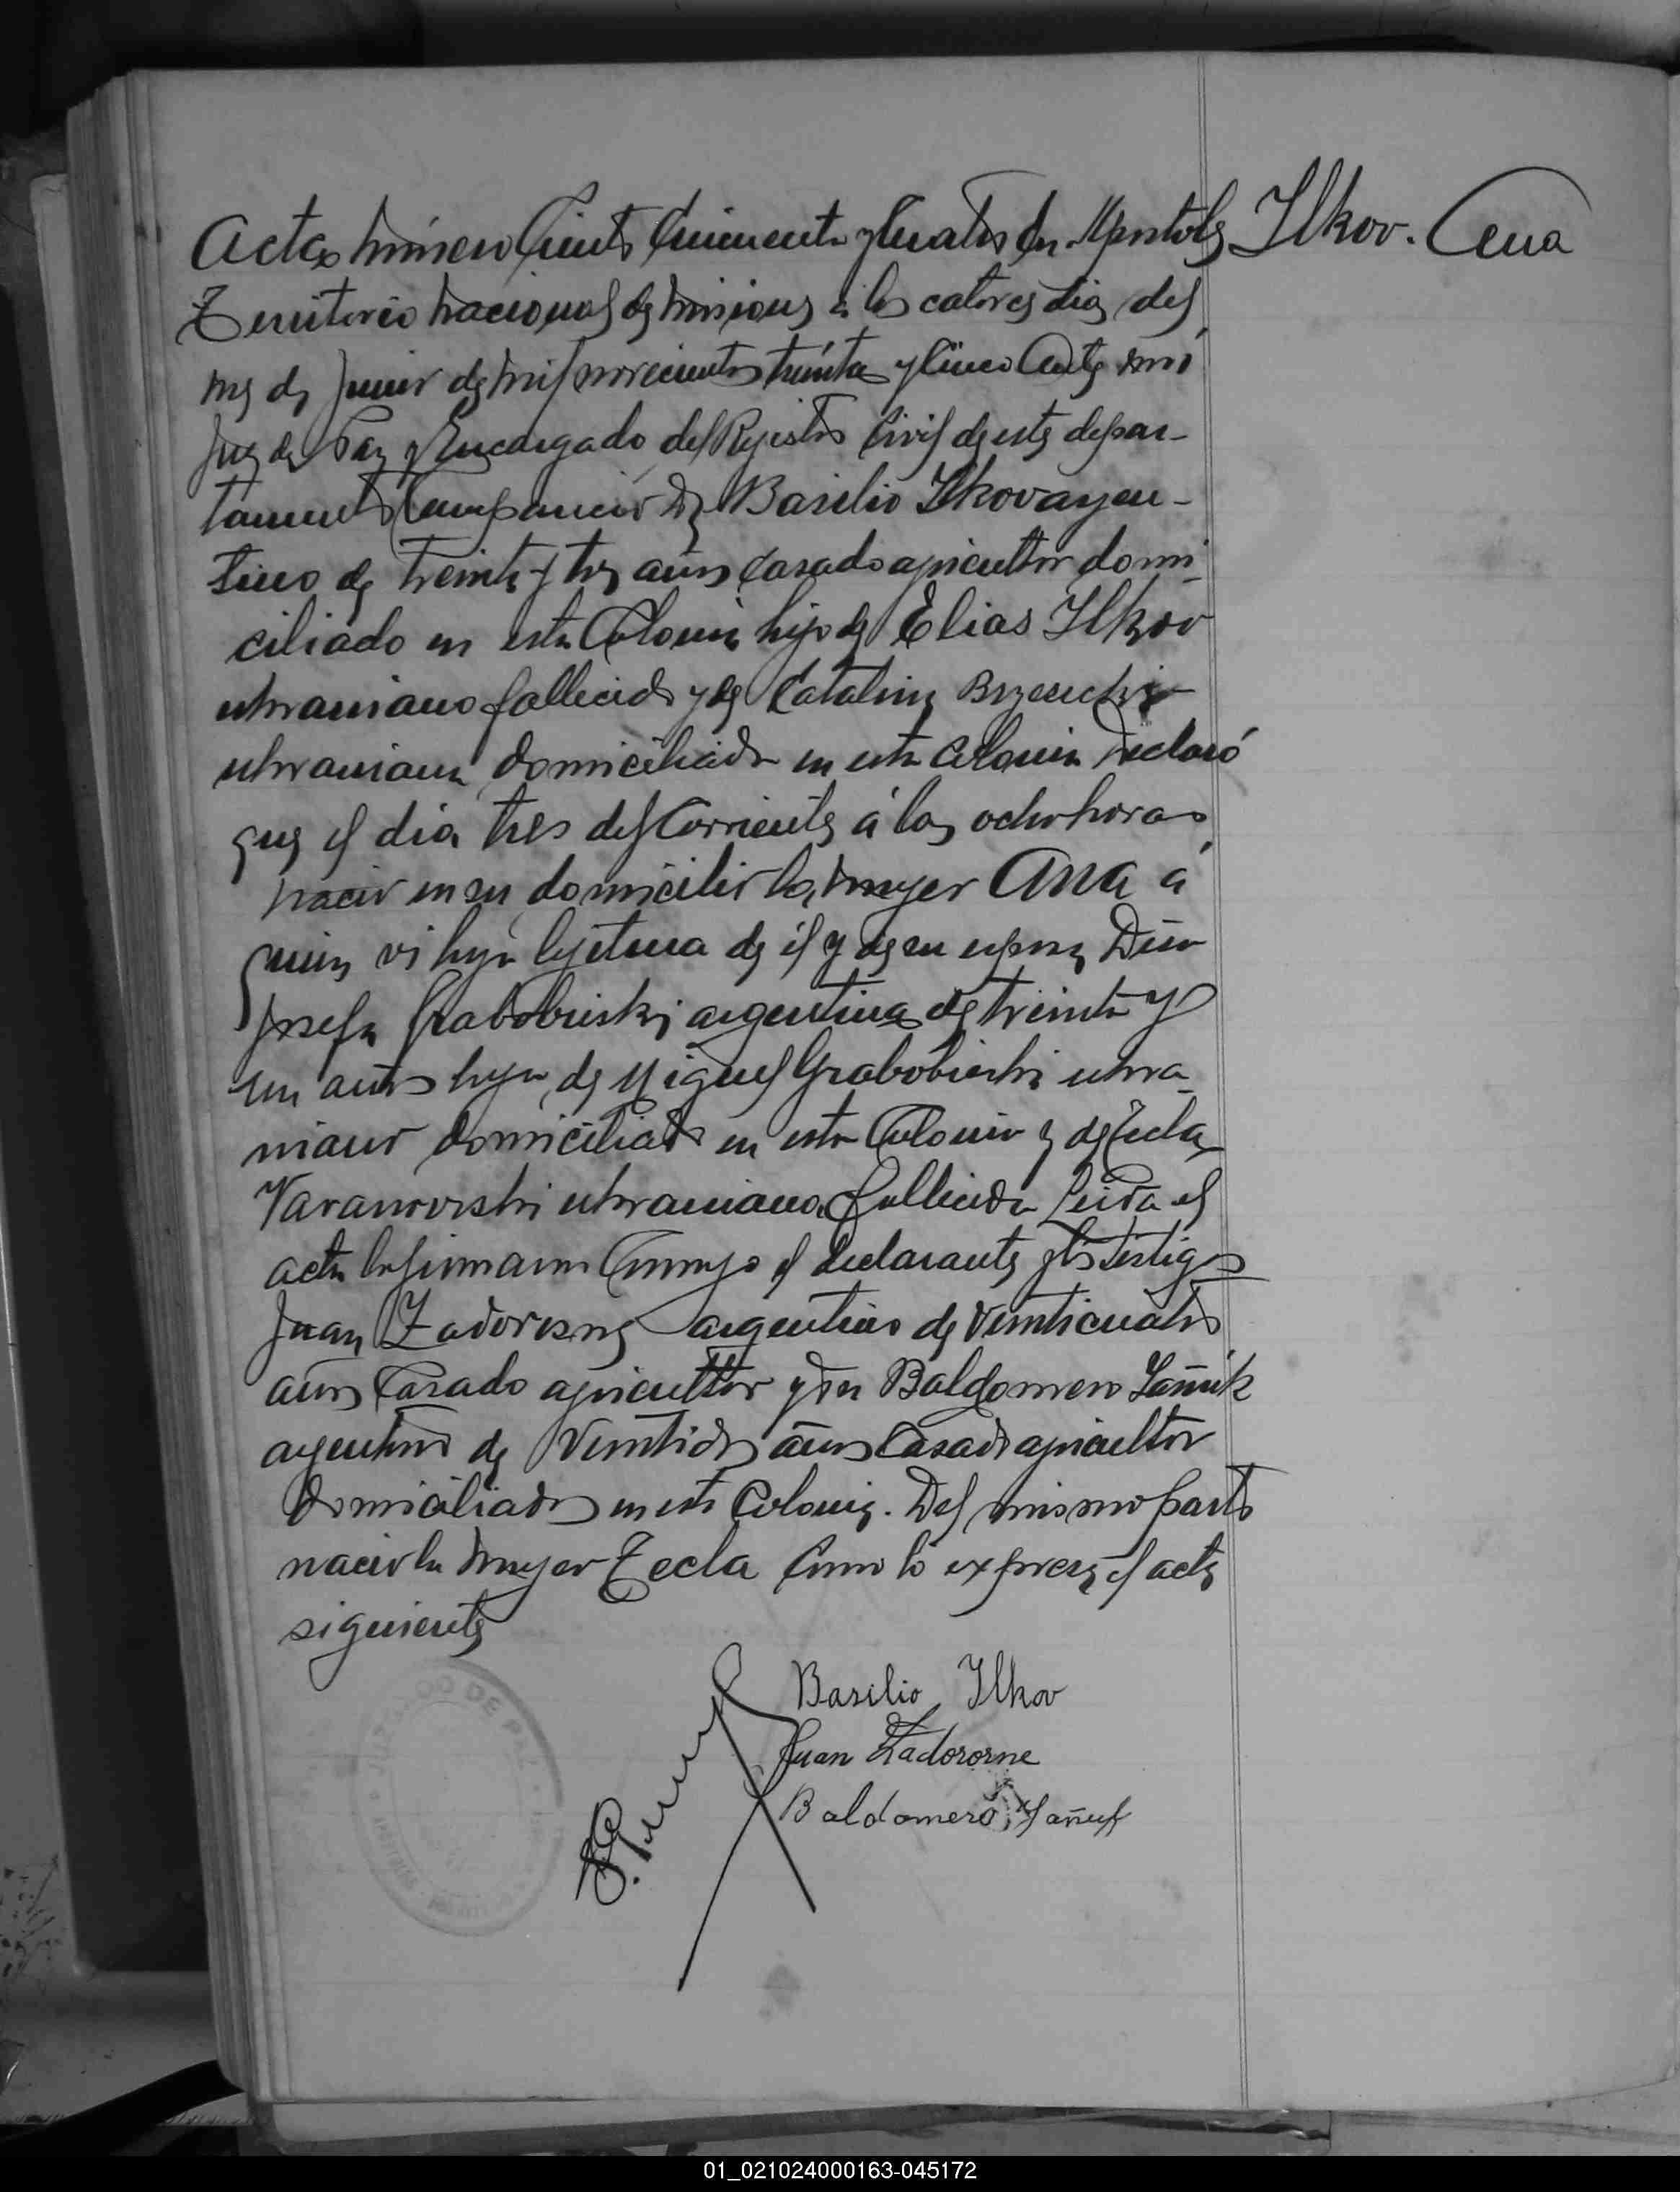 Acta número Ciento Cincuenta y Cuatro En Apostoles
Ilkov. Ana
Territorio nacional de Misiones a los catorce dias del
mes de Junio de mil novecientos treinta y Cinco Ante mi
Juez de Paz y Encargado del Rejistro Civil de este depar-
tamento Comparecio Dn Basilio Ilkov argen-
tino de treinta y tres años casado agricultor domi-
ciliado en esta Colonia hijo de Elias Ilkov
ukraniano fallecido y de Catalina
ukraniana domiciliada en esta Colonia Declaró
que el dia tres del Corriente á las ocho horas
nacio en su domicilio la mujer Ana á
quien vi hija lejitima de él y de su esposa Doña
Josefa Grabobieski argentina de treinta y
un años hija de Miguel Grabobieski ukra-
niano domiciliado en esta Colonia y de Tecla
Varanovski ukraniana fallecida Leida el
acta la firmaron Conmigo el declarante y los testigos
Juan Zadorosne argentino de Veinticuatro
años Casado agricultor y Don Baldomero Yañuk
argentino de Veintidos años Casado agricultor
domiciliados en esta Colonia. Del mismo parto
nacio la mujer Tecla Como lo expresa el acta
siguiente
Basilio Ilkov
Juan Zadororne
Baldomero Yañuk
JUZGADO DE PAZ
01_021024000163-045172